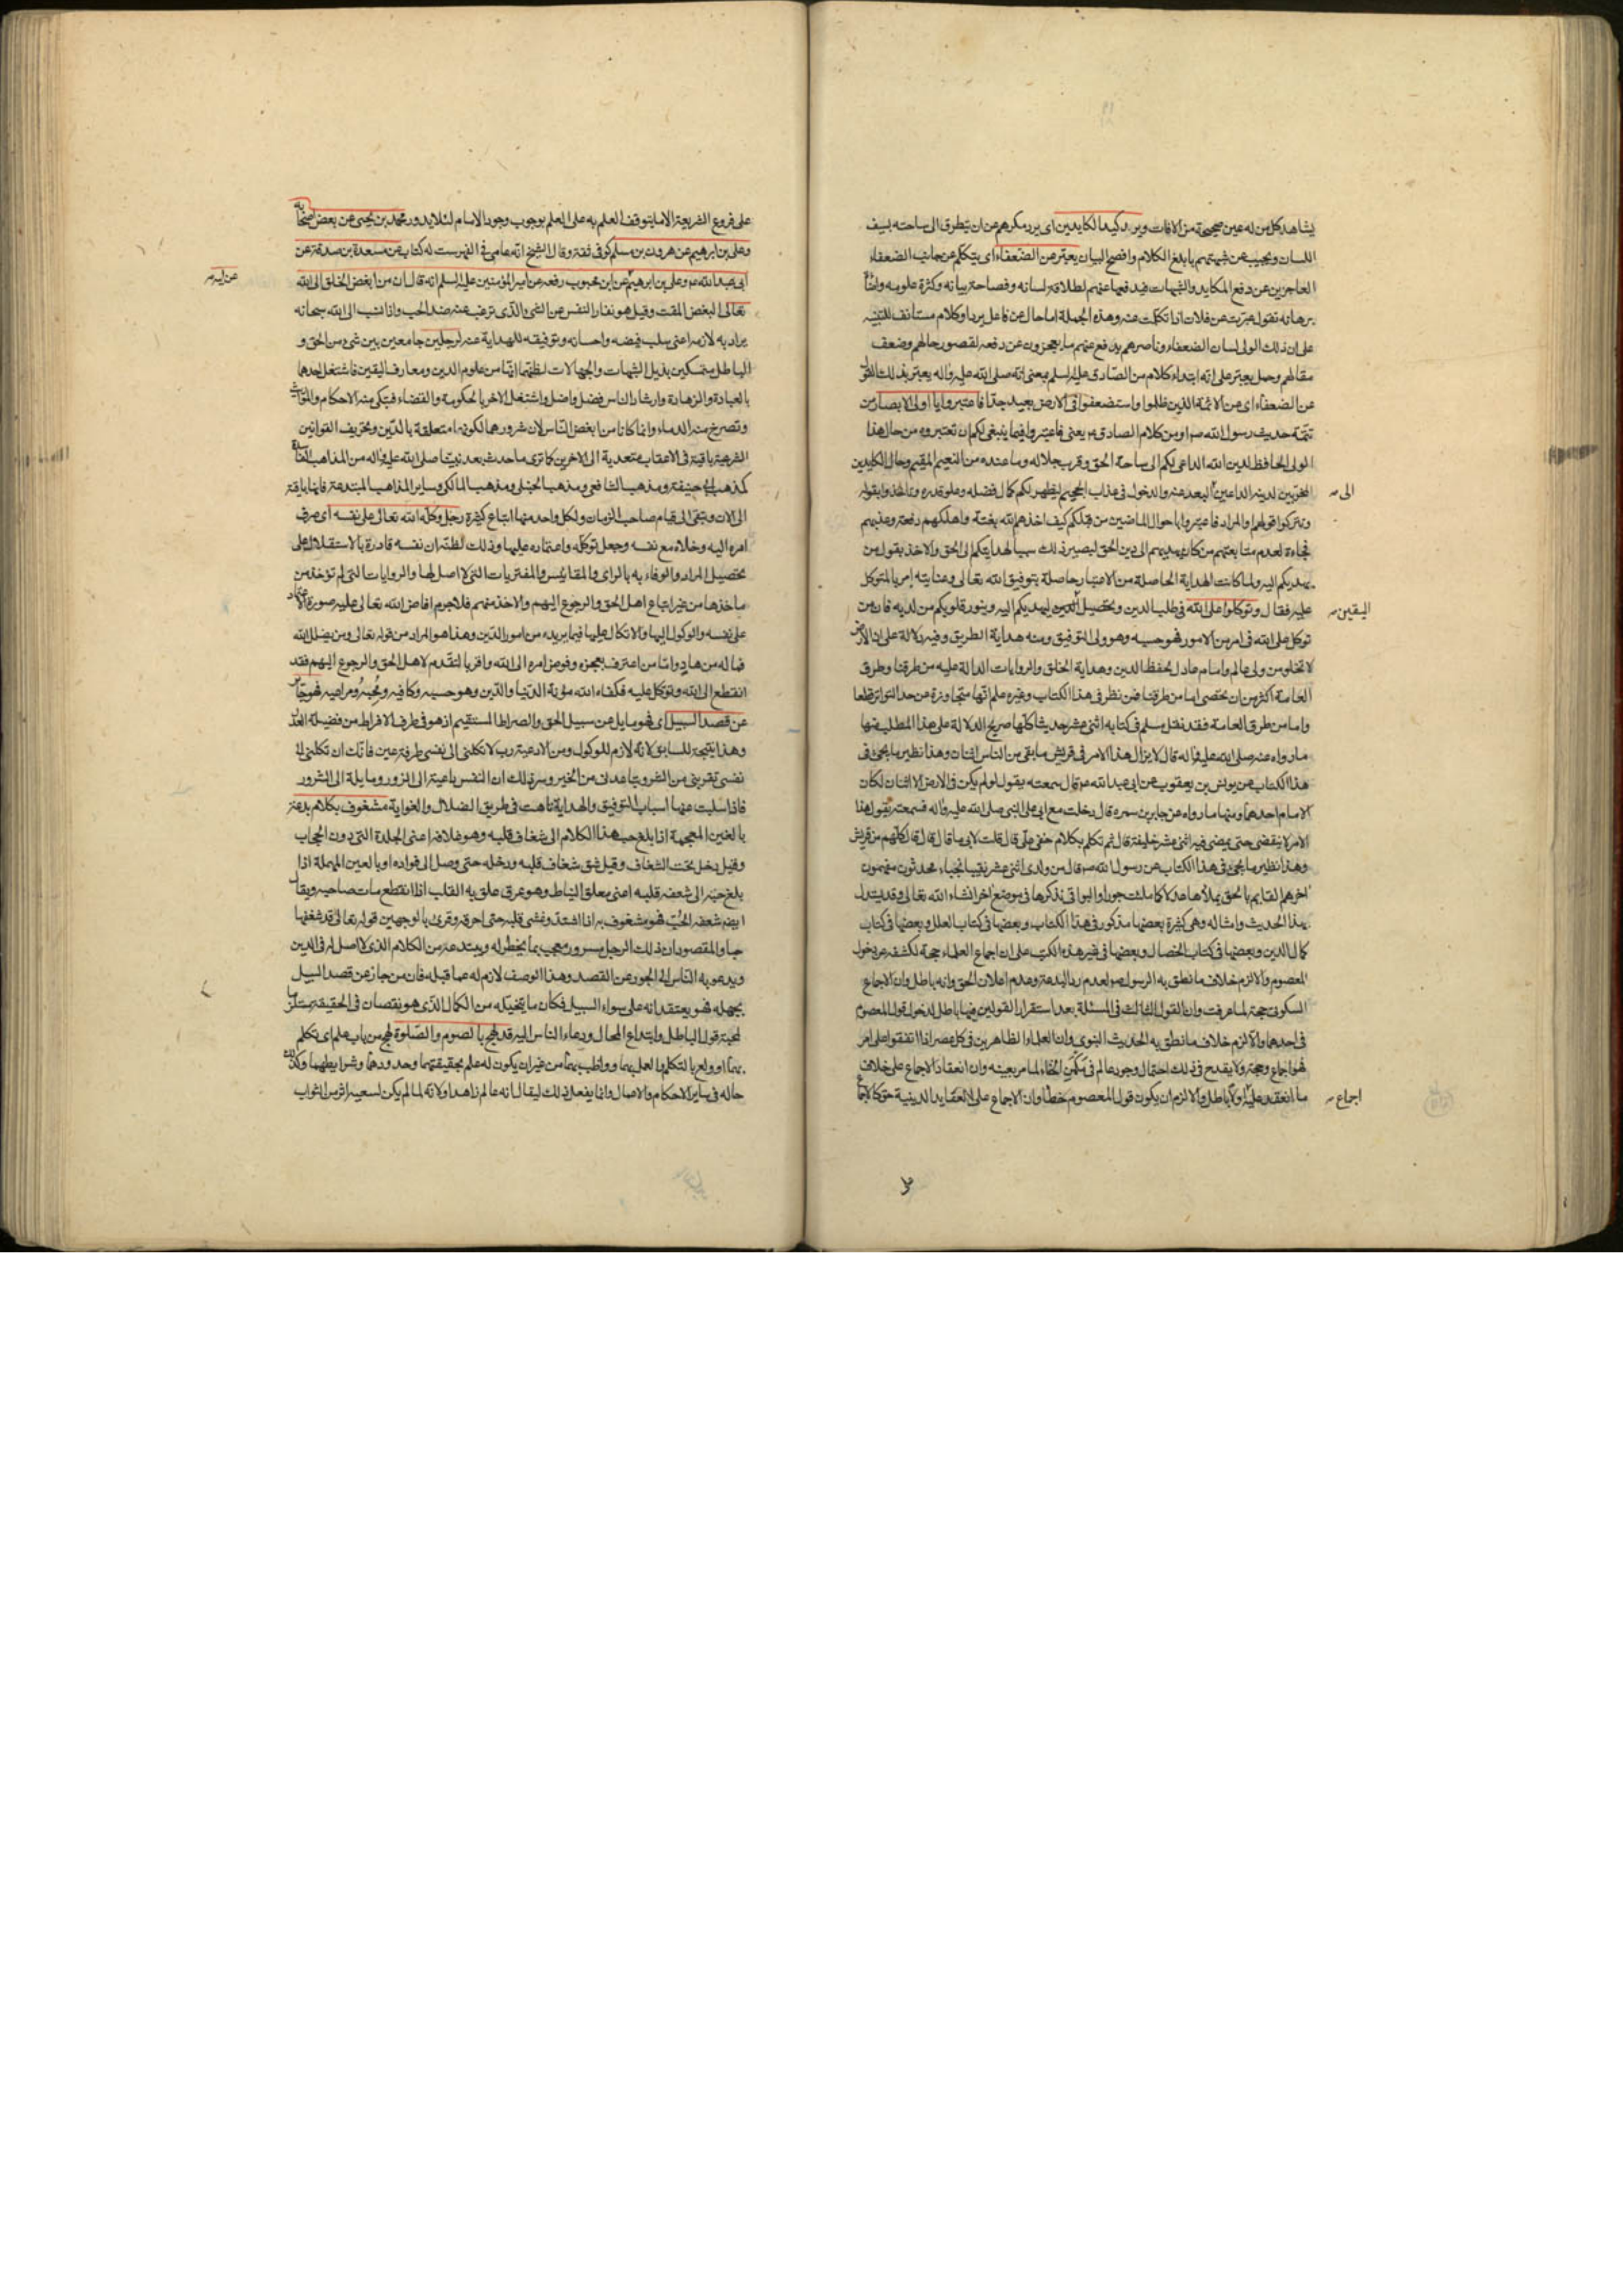 يشاهد كل من له عين صحيحة من الافات ويرد كيد الكايدين اى يرد مكرهم عن ان يتطرق الى ساحته بسيف
اللسان ويجيب عن شبهتهم بابلغ الكلام وافصح البيان يعبّر عن الضعفاء اى يتكلم عن جانب الضعفاء
العاجزين عن دفع المكايد والشبهات فيدفعها عنهم لطلاقة لسانه وفصاحة بيانه وكثرة علومه
برهانه تقول عبّرت عن فلان اذا تكلمت عنه وهذه الجملة اما حال عن فاعل يرد او كلام مستأنف
على ان ذلك الولى لسان الضعفاء وناصرهم يدفع عنهم ما يعجزون عن دفعه لقصور حالهم وضعف
مقالهم وجعل يعبّر على انه ابتداء كلام من الصادق عليه السلم بمعنى انه صلى الله عليه واله يعبّر بذلك
عن الضعفاء اى عن الائمة الذين ظلموا واستضعفوا فى الارض بعيد جدّا فاعتبروا يا اولى الابصار من
تتمة حديث رسول الله ص او من كلام الصادق ع يعنى فاعتبروا فيما ينبغى لكم ان تعتبروه من حال هذا
الولى الحافظ لدين الله الداعى لكم الى ساحة الحق وقرب جلاله وما عنده من النعيم المقيم وحال الكايدين
المخربين لدينه الداعين البعد عنه والدخول فى عذاب الجحيم ليظهر لكم كمال فضله وعلو قدره وتاخذوا بقوله
الى
وتتركوا قولهم او المراد فاعتبروا باحوال الماضين من قبلكم كيف اخذهم الله بغتة واهلكهم دفعة وعذبهم
فجاءة لعدم متابعتهم من كان يهديهم الى دين الحق ليصير ذلك سببا لهدايتكم الى الحق والاخذ بقول من
يهديكم اليه ولما كانت الهداية الحاصلة من الاعتبار حاصلة بتوفيق الله تعالى وعنايته امر بالتوكل
عليه فقال وتوكلوا على الله فى طلب الدين وتحصيل ليهديكم اليه وينور قلوبكم من لديه فان من
اليقين
توكل على الله فى امر من الامور فهو حسبه وهو ولى التوفيق ومنه هداية الطريق وفيه دلالة على ان الارض
لا تخلو من ولى عالم وامام عادل لحفظ الدين وهداية الخلق والروايات الدالة عليه من طرقنا وطرق
العامة اكثر من ان تحصى اما من طرقنا فمن نظر فى هذا الكتاب وغيره علم انها متجاوزة عن حد التواتر قطعا
واما من طرق العامة فقد نقل مسلم فى كتابه اثنى عشر حديثا كلها صريح الدلالة على هذا المطلب منها
ما رواه عنه صلى الله عليه واله قال لا يزال هذا الامر فى قريش ما بقى من الناس اثنان وهذا نظير ما يجئ فى
هذا الكتاب عن يونس بن يعقوب عن ابى عبد الله ع قال سمعته يقول لو لم يكن فى الارض الا اثنان لكان
الامام احدهما ومنها ما رواه عن جابر بن سمرة قال دخلت مع ابى على النبى صلى الله عليه واله فسمعته يقول ان هذا
الامر لا ينقضى حتى يمضى فيه اثنى عشر خليفة قال ثم تكلم بكلام خفى علّى قال قلت لابى ما قال قال قال كلهم من قريش
وهذا نظير ما يجئ فى هذا الكتاب عن رسول الله ص قال من ولدى اثنى عشر نقيبا نجباء محدثون مفهمون
اخرهم القايم بالحق يملاها عدلا كما ملئت جورا والبواقى نذكرها فى موضع اخر انشاء الله تعالى وقد يستدل
بهذا الحديث وامثاله وهى كثيرة بعضها مذكور فى هذا الكتاب وبعضها فى كتاب العلل وبعضها فى كتاب
كمال الدين وبعضها فى كتاب الخصال وبعضها فى غير هذه الكتب على ان اجماع العلماء حجة لكشفه عن دخول
المعصوم والا لزم خلاف ما نطق به الرسول ص لعدم رد البدعة وعدم اعلان الحق وانه باطل وان الاجماع
السكوتى حجة لما عرفت وان القول الثالث فى المسئلة بعد استقرار القولين فيها باطل لدخول قول المعصوم
فى احدهما والا لزم خلاف ما نطق به الحديث النبوى وان العلماء الظاهرين فى كل عصر اذا اتفقوا على امر
فهو اجماع وحجة ولا يقدح فى ذلك احتمال وجود عالم فى مكمن الخفاء لما مر بعينه وان انعقاد الاجماع على خلاف
ما انعقد عليه اولا باطل والا لزم ان يكون قول المعصوم خطأ وان الاجماع على العقايد الدينية حق كالاجماع
اجماع
على فروع الشريعة الا ما يتوقف العلم به على العلم بوجوب وجود الامام لئلا يدور محمد بن يحيى عن بعض اصحابه
وعلى بن ابرهيم عن هرون بن مسلم كوفى ثقة وقال الشيخ انه عامى فى الفهرست له كتاب عن مسعدة بن صدقة عن
ابى عبد الله ع وعلى بن ابرهيم عن ابن محبوب رفعه عن امير المؤمنين عليه السلم انه قال ان من ابغض الخلق الى الله
عن ابيه
تعالى البغض المقت وقيل هو نفار النفس عن الشئ الذى ترغب عنه ضد الحب واذا نسب الى الله سبحانه
يراد به لازمه اعنى سلب فيضه واحسانه وتوفيقه للهداية عنه لرجلين جامعين بين شئ من الحق و
الباطل متمسكين بذيل الشبهات والجهالات لظنهما انها من علوم الدين ومعارف اليقين فاشتغل احدهما
بالعبادة والزهادة وارشاد الناس فضل واضل واشتغل الاخر بالحكومة والقضاء فتبكى منه الاحكام والمواريث
وتصرخ منه الدماء وانما كانا من ابغض الناس لان شرورهما لكونها متعلقة بالدين وتحريف القوانين
الشرعية باقية فى الاعقاب متعدية الى الاخرين كما ترى ما حدث بعد نبينا صلى الله عليه واله من المذاهب الفاسدة
كمذهب ابى حنيفة ومذهب الشافعى ومذهب الحنبلى ومذهب المالكى وساير المذاهب المبتدعة فانها باقية
الى الان وتبقى الى قيام صاحب الزمان ولكل واحد منها اتباع كثيرة رجل وكله الله تعالى على نفسه اى صرف
امره اليه وخلاه مع نفسه وجعل توكله واعتماده عليها وذلك لظنه ان نفسه قادرة بالاستقلال على
تحصيل المراد والوفاء به بالراى والمقاييس والمفتريات التى لا اصل لها والروايات التى لم تؤخذ من
ماخذها من غير اتباع اهل الحق والرجوع اليهم والاخذ منهم فلا جرم افاض الله تعالى عليه صورة الاعتماد
على نفسه والوكول اليها والاتكال عليها فيما يريده من امور الدين وهذا هو المراد من قوله تعالى ومن يضلل الله
فما له من هاد واما من اعترف بعجزه وفوض امره الى الله واقر بالتقدم لاهل الحق والرجوع اليهم فقد
انقطع الى الله وتوكل عليه فكفاه الله مؤنة الدنيا والدين وهو حسبه وكافيه فهو جاير
عن قصد السبيل اى فهو مايل عن سبيل الحق والصراط المستقيم اذ هو فى طرف الافراط من فضيلة العدل
وهذا نتيجة للسابق لانه لازم للوكول ومن الادعية رب لا تكلنى الى نفسى طرفة عين فانك ان تكلنى الى
نفسى تقربنى من الشر وتباعدنى من الخير وسر ذلك ان النفس داعية الى الزور ومايلة الى الشرور
فاذا سلبت عنها اسباب التوفيق والهداية تاهت فى طريق الضلال والغواية مشغوف بكلام بدعة
بالغين المعجمة اذا بلغ حب هذا الكلام الى شغاف قلبه وهو غلافه اعنى الجلدة التى دون الحجاب
وقيل دخل تحت الشغاف وقيل شق شغاف قلبه ودخله حتى وصل الى فواده او بالعين المهملة اذا
بلغ حبه الى شعفة قلبه اعنى معلق النياط وهو عرق علق به القلب اذا انقطع مات صاحبه ويقال
ايضا شعفه الحب فهو مشغوف به اذا اشتد وغشى قلبه حتى احرقه وقرئ بالوجهين قوله تعالى قد شغفها
حبا والمقصود ان ذلك الرجل مسرور معجب بما يخطر له ويبتدعه من الكلام الذى لا اصل له فى الدين
ويدعو به الناس الى الجور عن القصد وهذا الوصف لازم له عما قبله فان من جاز عن قصد السبيل
بجهله فهو يعتقد انه على سواء السبيل فكان ما يتخيله من الكمال الذى هو نقصان فى الحقيقة مستلزما
لمحبة قول الباطل وابتداع المحال ودعاء الناس اليه قد لهج بالصوم والصلوة لهج من باب علم اى تكلم
بهما او ولع بالتكلم والعمل بهما وواظب بهما من غير ان يكون له علم بحقيقتهما وحدودهما وشرايطهما وكذلك
حاله فى ساير الاحكام والاعمال وانما يفعل ذلك ليقال انه عالم زاهد او لانه لما لم يكن لسعيه اثر من الثواب